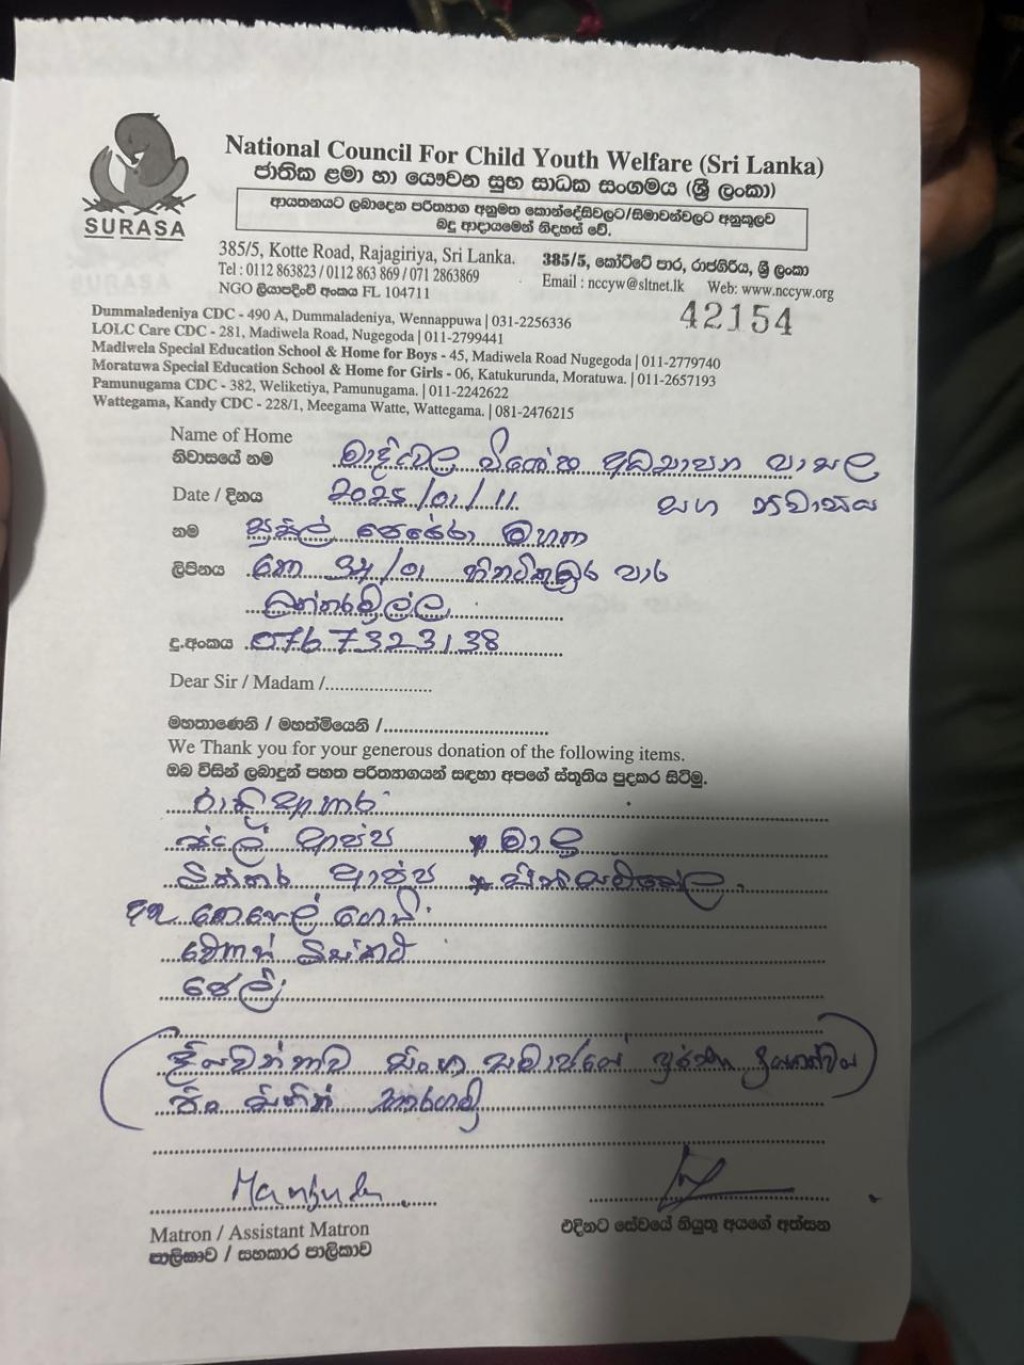 National Council For Child Youth Welfare (Sri Lanka)
ජාතික ළමා හා යෞවන සුභ සාධක සංගමය (ශ්‍රී ලංකා)
ආයතනයට ලබාදෙන පරිත්‍යාග අනුමත කොන්දේසිවලට/සීමාවන්වලට අනුකූලව
බදු ආදායමෙන් නිදහස් වේ.
SURASA
385/5, Kotte Road, Rajagiriya, Sri Lanka.
385/5, කෝට්ටේ පාර, රාජගිරිය, ශ්‍රී ලංකා
Tel : 0112 863823 / 0112 863 869 / 071 2863869
Email : nccyw@sltnet.lk Web: www.nccyw.org
NGO ලියාපදිංචි අංකය FL 104711
42154
Dummaladeniya CDC - 490 A, Dummaladeniya, Wennappuwa | 031-2256336
LOLC Care CDC - 281, Madiwela Road, Nugegoda | 011-2799441
Madiwela Special Education School & Home for Boys - 45, Madiwela Road Nugegoda | 011-2779740
Moratuwa Special Education School & Home for Girls - 06, Katukurunda, Moratuwa. | 011-2657193
Pamunugama CDC - 382, Weliketiya, Pamunugama. | 011-2242622
Wattegama, Kandy CDC - 228/1, Meegama Watte, Wattegama. | 081-2476215
Name of Home
නිවාසයේ නම මාදිවෙල විශේෂ අධ්‍යාපන පාසල
සහ නිවාසය
Date / දිනය 2025/01/11
නම සුනිල් පෙරේරා මහතා
ලිපිනය නො 34/01 පාර
බත්තරමුල්ල
දු.අංකය 0767323138
Dear Sir / Madam /
මහතාණෙනි / මහත්මියෙනි /
We Thank you for your generous donation of the following items.
ඔබ විසින් ලබාදුන් පහත පරිත්‍යාගයන් සඳහා අපගේ ස්තූතිය පුදකර සිටිමු.
රාත්‍රී ආහාර
ආප්ප * මාළු
බිත්තර ආප්ප *
කෙසෙල් ගෙඩි
බිස්කට්
ජෙලි
සමාජයේ
Matron / Assistant Matron
පාලිකාව / සහකාර පාලිකාව
එදිනට සේවයේ නියුතු අයගේ අත්සන